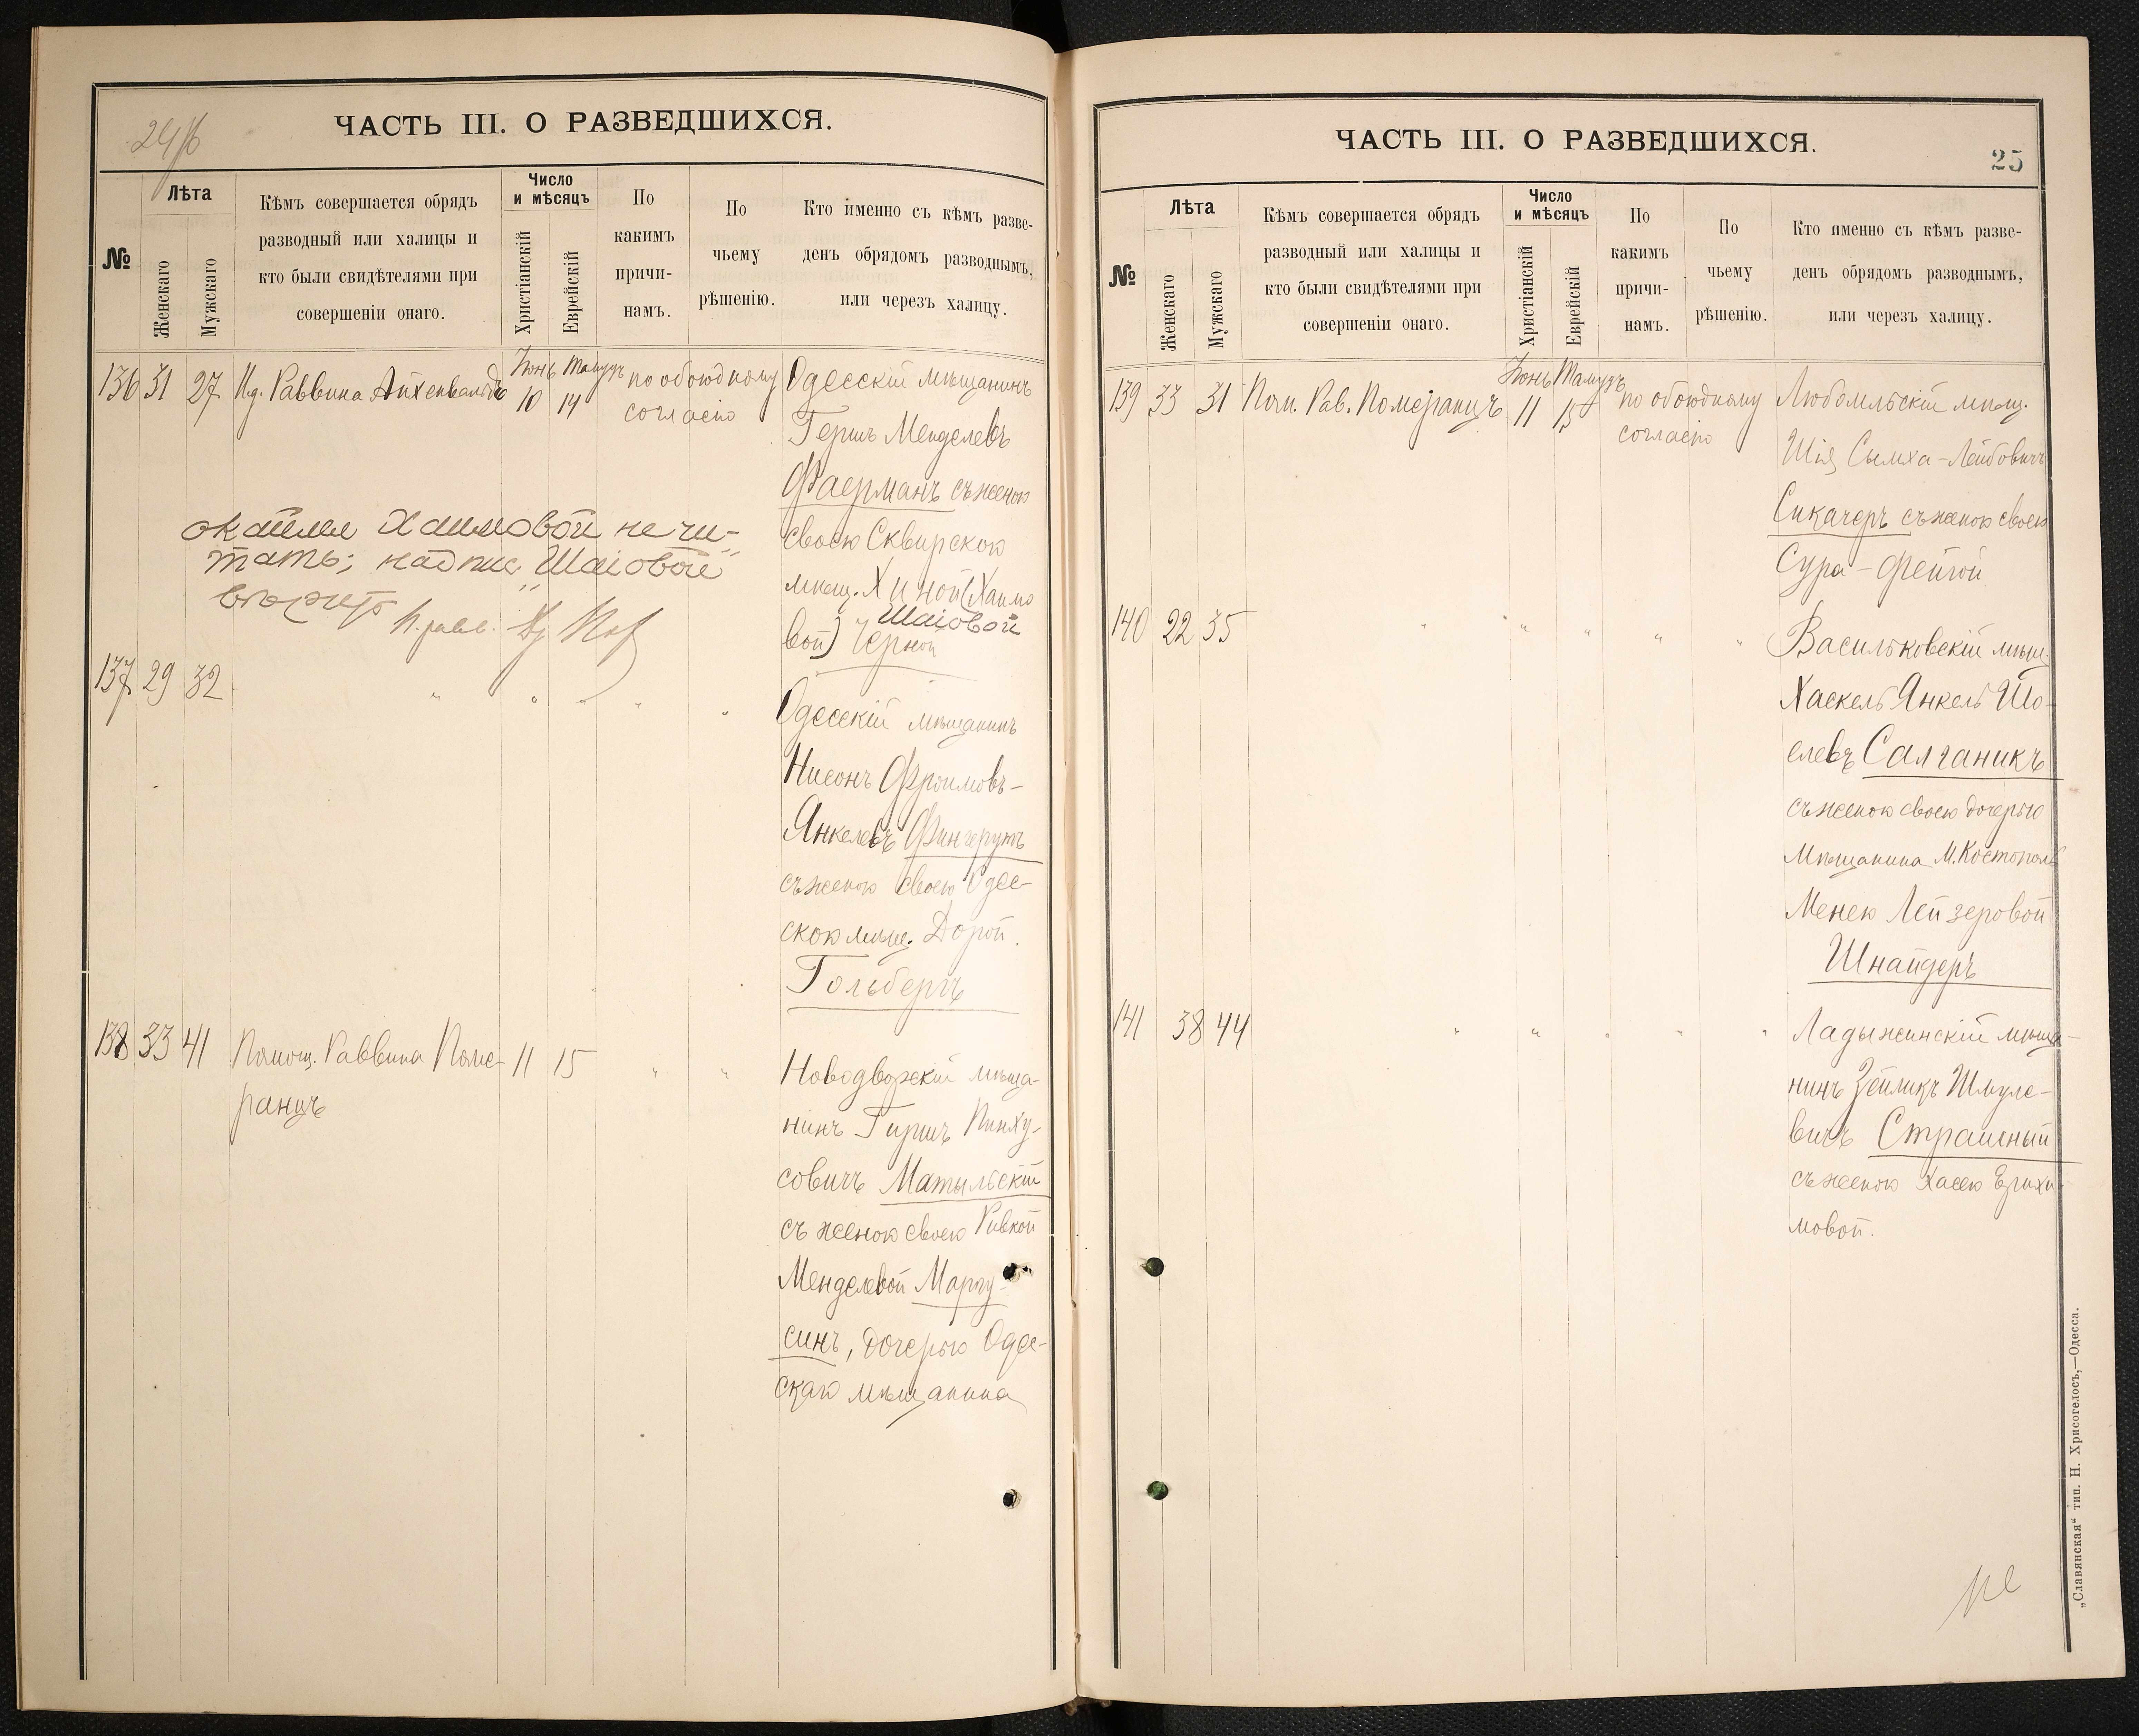 24/б
ЧАСТЬ III. О РАЗВЕДШИХСЯ.
№
Лѣта
Женскаго
Мужскаго
Кѣмъ совершается обрядъ
разводный или халицы и
кто были свидѣтелями при
совершеніи онаго.
Число
и мѣсяцъ
Христіанскій
Еврейскій
По
какимъ
причи-
намъ.
По
чьему
рѣшенію.
Кто именно съ кѣмъ разве-
денъ обрядомъ разводнымъ,
или черезъ халицу.
136 31 27 Ид. Раввина Айхенвальдъ Іюнь 10 Тамузъ 14 по обоюдному
согласію
Одесскій мѣщанинъ
Гершъ Менделевъ
Фаерманъ съ женою
своею Сквирскою
мѣщ. Хиной (Хаимо
вой) Шаіовой
Черной
Хаимовой не чи-
тать; надпис. "Шаіовой"
137 29 32 " " " " "
Одесскій мѣщанинъ
Нисонъ Фроимовъ-
Янкелевъ Фингерутъ
съ женою своею Одес-
скою мѣщ. Дорой
Гольбергъ
138 33 41 Помощ. Раввина Поме- 11 15 " "
ранцъ
Новодворскій мѣща-
нинъ Гершъ Пинху-
совичъ Матыльскій
съ женою своею Ривкой
Менделевой Маргу-
синъ, дочерью Одес-
скаго мѣщанина
ЧАСТЬ III. О РАЗВЕДШИХСЯ.
25
№
Лѣта
Женскаго
Мужскаго
Кѣмъ совершается обрядъ
разводный или халицы и
кто были свидѣтелями при
совершеніи онаго.
Число
и мѣсяцъ
Христіанскій
Еврейскій
По
какимъ
причи-
намъ.
По
чьему
рѣшенію.
Кто именно съ кѣмъ разве-
денъ обрядомъ разводнымъ,
или черезъ халицу.
139 33 31 Пом. Рав. Померанцъ Іюнь 11 Тамузъ 15 по обоюдному
согласію
Любомльскій мѣщ.
Шія Сымха-Лейбовичъ
Сикачеръ съ женою своею
Сура-Фейгой
140 22 35 " " " " "
Васильковскій мѣщ.
Хаскель Янкель Шо-
елевъ Салганикъ
съ женою своею дочерью
мѣщанина М. Костополь
Менею Лейзеровой
Шнайдеръ
141 38 44 " " " " "
Ладыжинскій мѣща-
нинъ Зейликъ Шмуле-
вичъ Страшный
съ женою Хасею Ерухи-
мовой.
„Славянская“ тип. Н. Хрисогелосъ,—Одесса.